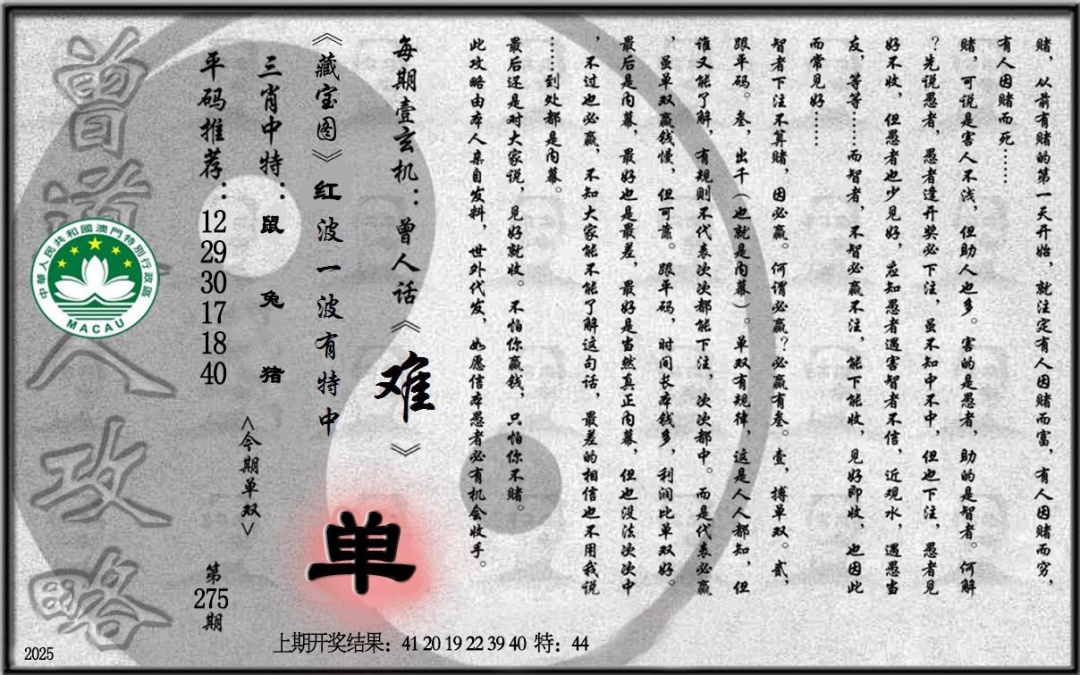 赌，从前有赌的第一天开始，就注定有人因赌而富，有人因赌而穷，
有人因赌而死……
赌，可说是害人不浅，但助人也多。害的是愚者，助的是智者。何解
？先说愚者，愚者逢开奖必下注，虽不知中不中，但也下注，愚者见
好不收，但愚者也少见好，应知愚者遇害智者不信，近观水，遇愚当
友，等等……而智者，不智必赢不注，能下能收，见好即收，也因此
而常见好……
智者下注不算赌，因必赢。何谓必赢？必赢有叁。壹，搏单双。贰，
跟平码。叁，出千（也就是内幕）。单双有规律，这是人人都知，但
谁又能了解，有规则不代表次次都能下注，次次都中。而是代表必赢
，虽单双赢钱慢，但可靠。跟平码，时间长本钱多，利润比单双好。
最后是内幕，最好也是最差，最好是当然真正内幕，但也没法次次中
，不过也必赢，不知大家能不能了解这句话，最差的相信也不用我说
……到处都是内幕。
最后还是对大家说，见好就收。不怕你赢钱，只怕你不赌。
此攻略由本人亲自发料，世外代发，如愿信本愚者必有机会收手。
每期壹玄机：曾人话《难》
《藏宝图》红波一波有特中
单
三肖中特：鼠 兔 猪
<今期单双>
平码推荐：12 29 30 17 18 40
第275期
曾道人攻略
中華人民共和國澳門特別行政區
MACAU
上期开奖结果：41 20 19 22 39 40 特：44
2025